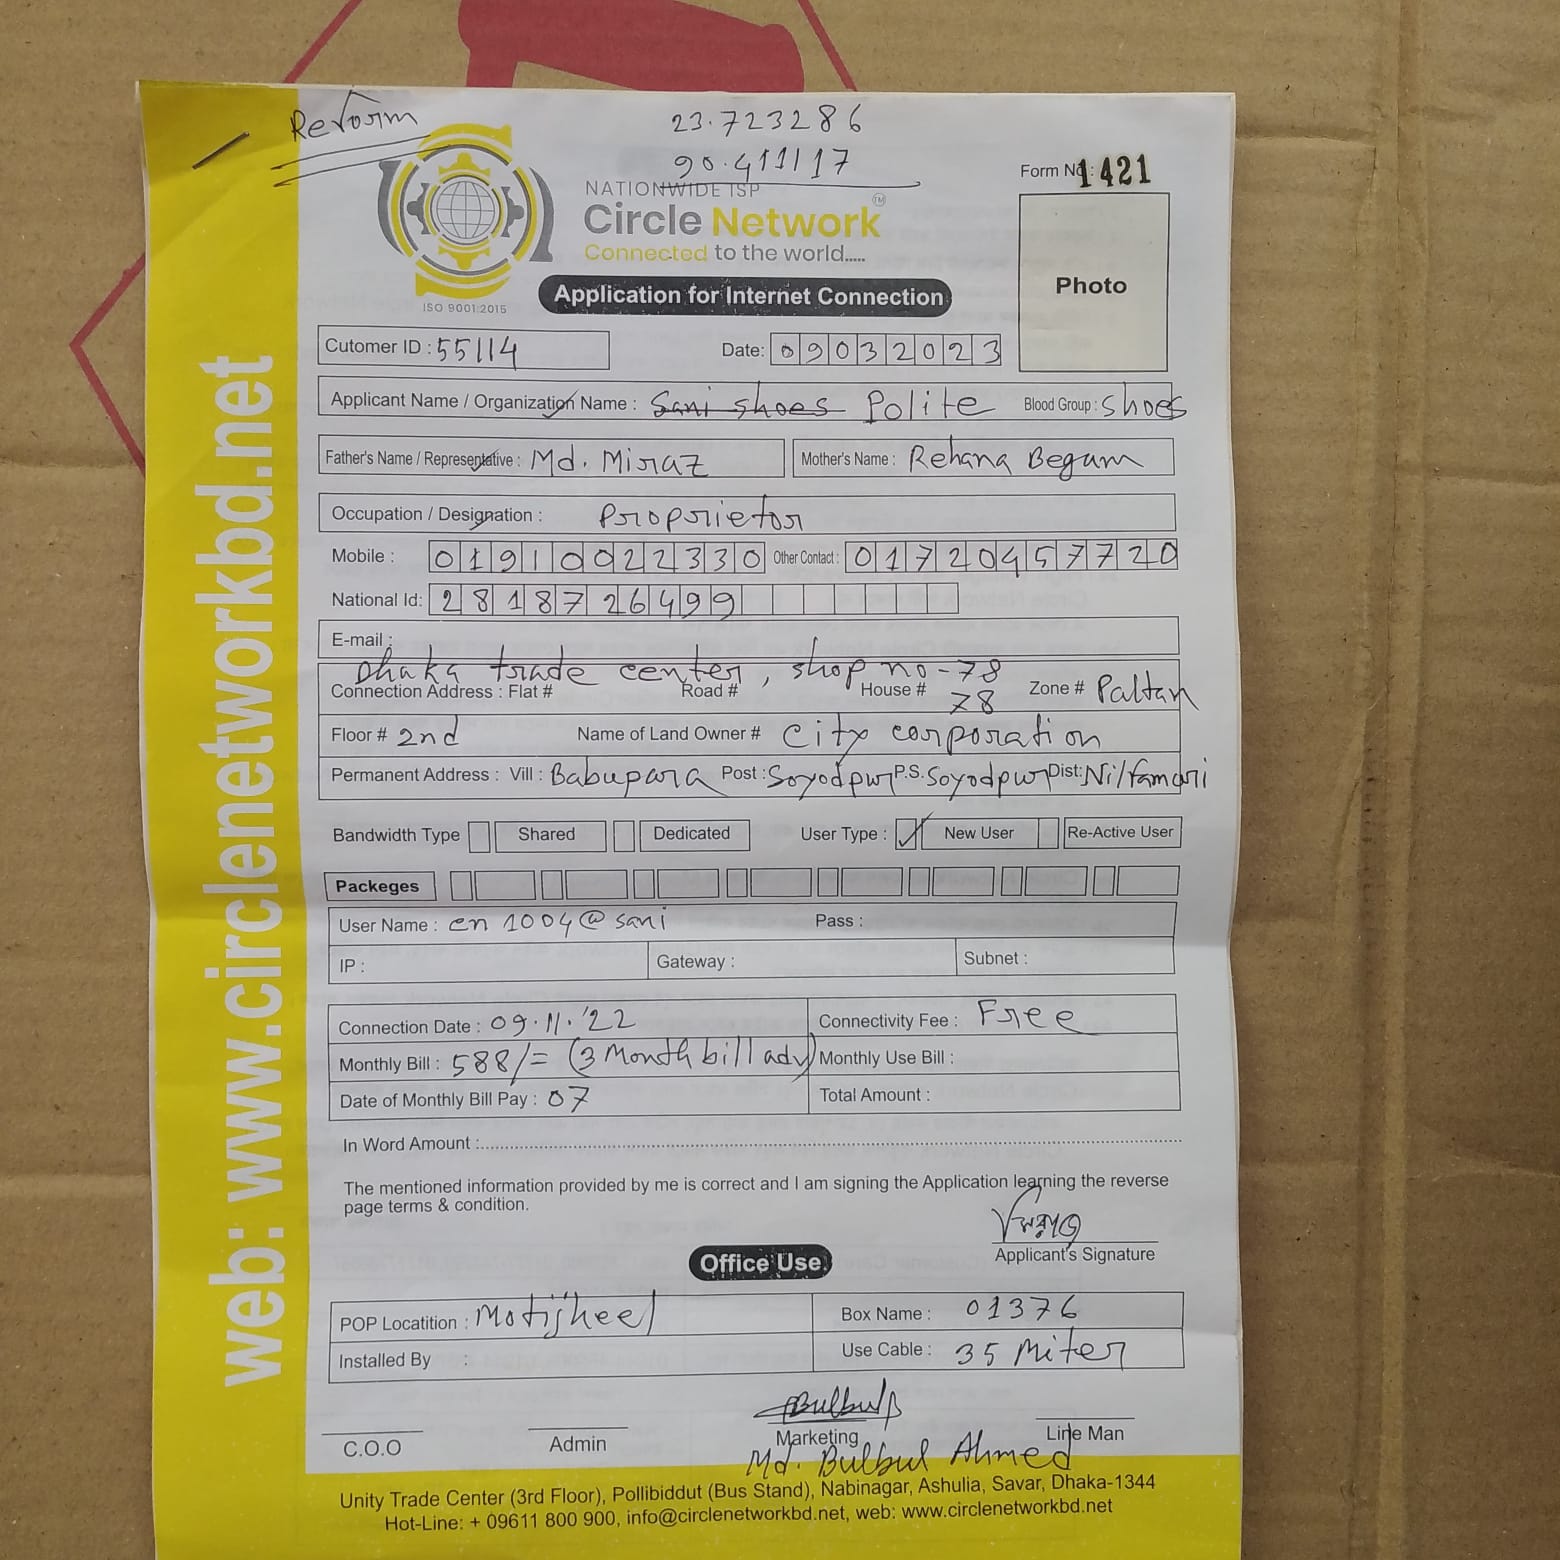 Reform
23.723286
90.411117
NATIONWIDE ISP
Circle Network TM
Connected to the world.....
ISO 9001:2015
Form No: 1421
Photo
Application for Internet Connection
Cutomer ID : 55114 Date: 09032023
Applicant Name / Organization Name : Sani shoes Polite Blood Group : shoes
Father's Name / Representative : Md. Miraz Mother's Name : Rehana Begum
Occupation / Designation : Proprietor
Mobile : 01910022330 Other Contact : 01720457720
National Id: 2818726499
E-mail :
Dhaka trade center, shop no-78
Connection Address : Flat # Road # House # 78 Zone # Paltan
Floor # 2nd Name of Land Owner # City corporation
Permanent Address : Vill : Babupara Post : Soyodpur P.S. Soyodpur Dist: Nilfamari
Bandwidth Type Shared Dedicated User Type : ✓ New User Re-Active User
Packeges
User Name : en1004@sani Pass :
IP : Gateway : Subnet :
Connection Date : 09.11.'22 Connectivity Fee : Free
Monthly Bill : 588/= (3 Month bill adv) Monthly Use Bill :
Date of Monthly Bill Pay : 07 Total Amount :
In Word Amount :
The mentioned information provided by me is correct and I am signing the Application learning the reverse
page terms & condition.
মিরাজ
Applicant's Signature
Office Use
POP Locatition : Motijheel Box Name : 01376
Installed By : Use Cable : 35 Miter
Bulbul
C.O.O Admin Marketing Line Man
Md. Bulbul Ahmed
Unity Trade Center (3rd Floor), Pollibiddut (Bus Stand), Nabinagar, Ashulia, Savar, Dhaka-1344
Hot-Line: + 09611 800 900, info@circlenetworkbd.net, web: www.circlenetworkbd.net
web: www.circlenetworkbd.net